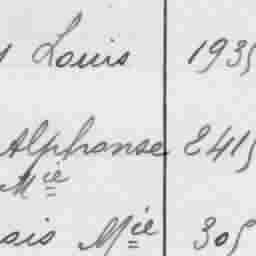 Louis 1935
Alphonse 2415
Mie
ois Mie 305